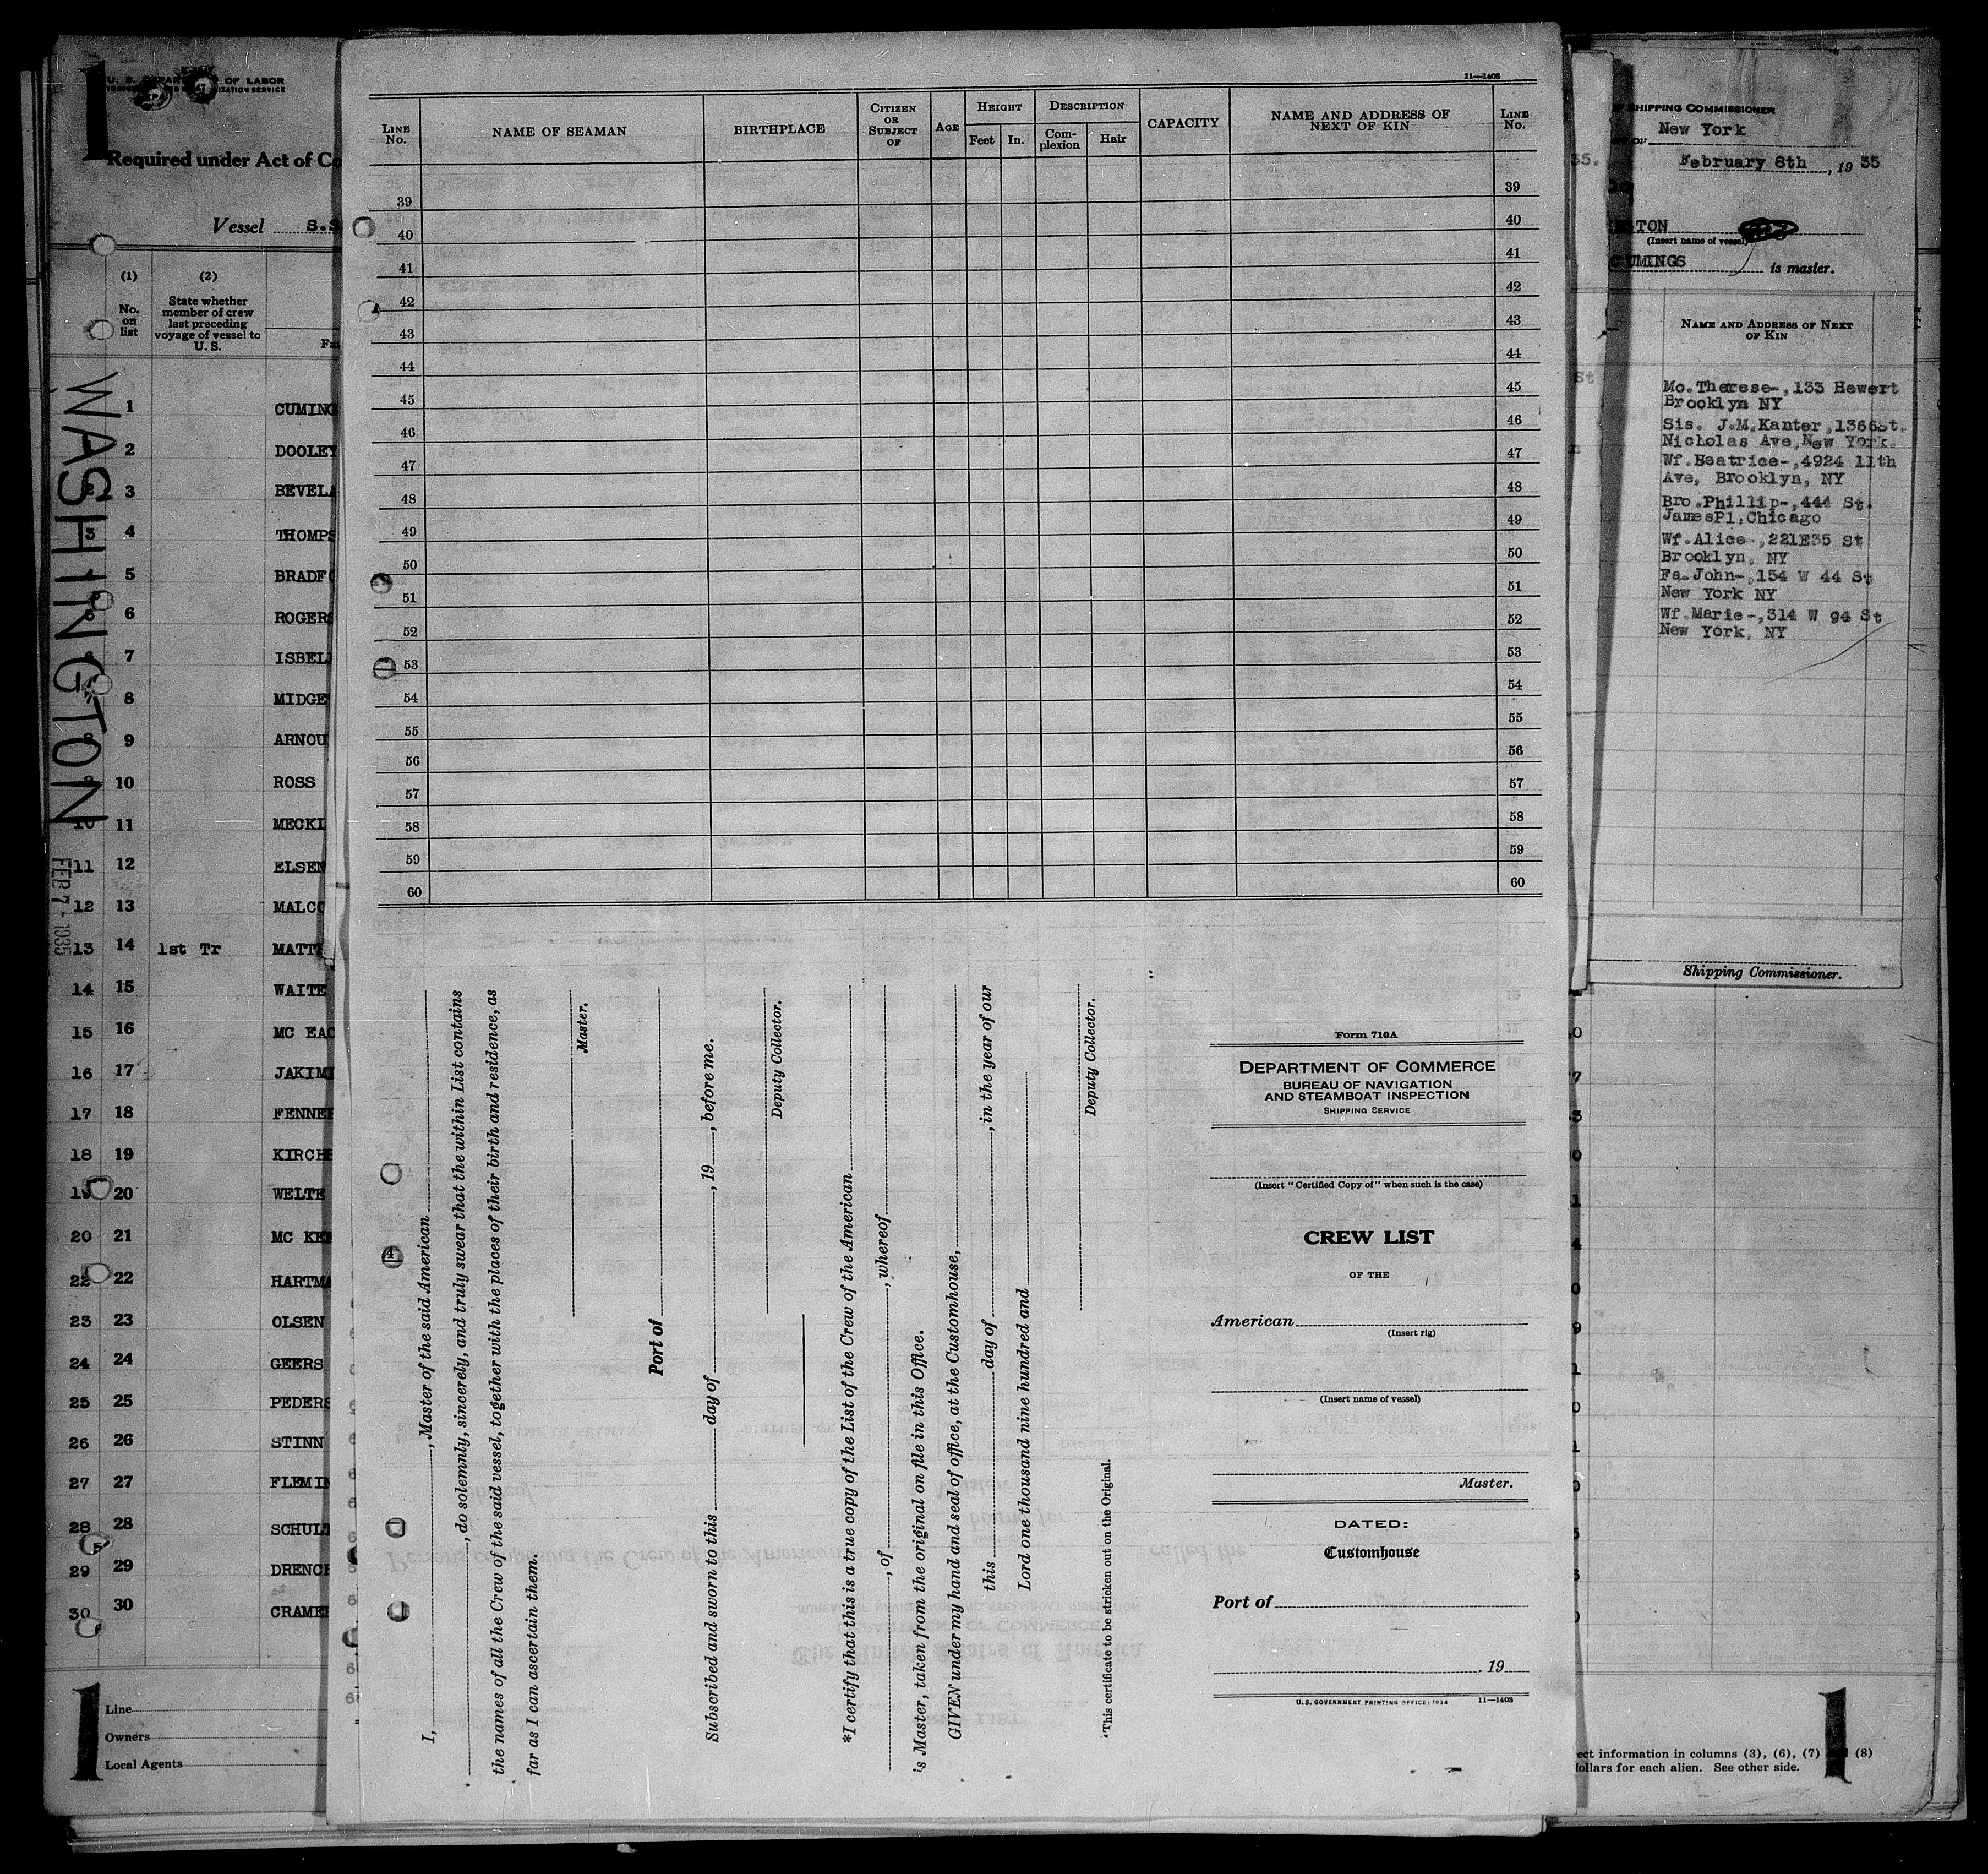 1
U. S. DEPARTMENT OF LABOR
Required under Act of Co
Vessel S.S
(1)
No.
on
list
(2)
State whether
member of crew
last preceding
voyage of vessel to
U. S.
WASHINGTON
FEB 7 - 1935
1 CUMING
2 DOOLEY
3 BEVELA
3 4 THOMPS
5 BRADFO
6 ROGERS
7 ISBELL
8 MIDGE
9 ARNOU
10 ROSS
10 11 MECKL
11 12 ELSEN
12 13 MALCO
13 14 1st Tr MATT
14 15 WAITE
15 16 MC EAC
16 17 JAKIM
17 18 FENNE
18 19 KIRCH
19 20 WELTE
20 21 MC KE
22 22 HARTMA
23 23 OLSEN
24 24 GEERS
25 25 PEDERS
26 26 STINN
27 27 FLEMIN
28 28 SCHUL
29 29 DRENC
30 30 CRAMER
1
Line
Owners
Local Agents
11—1408
LINE No. NAME OF SEAMAN BIRTHPLACE CITIZEN OR SUBJECT OF AGE HEIGHT Feet In. DESCRIPTION Com-plexion Hair CAPACITY NAME AND ADDRESS OF NEXT OF KIN LINE No.
39 39
40 40
41 41
42 42
43 43
44 44
45 45
46 46
47 47
48 48
49 49
50 50
51 51
52 52
53 53
54 54
55 55
56 56
57 57
58 58
59 59
60 60
I, , Master of the said American
, do solemnly, sincerely, and truly swear that the within List contains
the names of all the Crew of the said vessel, together with the places of their birth and residence, as
far as I can ascertain them.
Master.
Port of
Subscribed and sworn to this day of , 19 , before me.
Deputy Collector.
*I certify that this is a true copy of the List of the Crew of the American
, of , whereof
is Master, taken from the original on file in this Office.
GIVEN under my hand and seal of office, at the Customhouse,
this day of , in the year of our
Lord one thousand nine hundred and
Deputy Collector.
*This certificate to be stricken out on the Original.
Form 710A
DEPARTMENT OF COMMERCE
BUREAU OF NAVIGATION
AND STEAMBOAT INSPECTION
SHIPPING SERVICE
(Insert "Certified Copy of" when such is the case)
CREW LIST
OF THE
American
(Insert rig)
(Insert name of vessel)
Master.
DATED:
Customhouse
Port of
, 19
U.S. GOVERNMENT PRINTING OFFICE: 1934 11—1408
SHIPPING COMMISSIONER
New York
February 8th, 1935
TON
(Insert name of vessel)
CUMINGS is master.
NAME AND ADDRESS OF NEXT
OF KIN
Mo.Therese-,133 Hewert
Brooklyn NY
Sis. J.M.Kanter,1366St.
Nicholas Ave,New York.
Wf.Beatrice-,4924 11th
Ave, Brooklyn, NY
Bro.Phillip-,444 St.
JamesPl,Chicago
Wf.Alice-,221E35 St
Brooklyn, NY
Fa.John-,154 W 44 St
New York NY
Wf.Marie-,314 W 94 St
New York, NY
Shipping Commissioner.
ect information in columns (3), (6), (7) (8)
dollars for each alien. See other side.
1